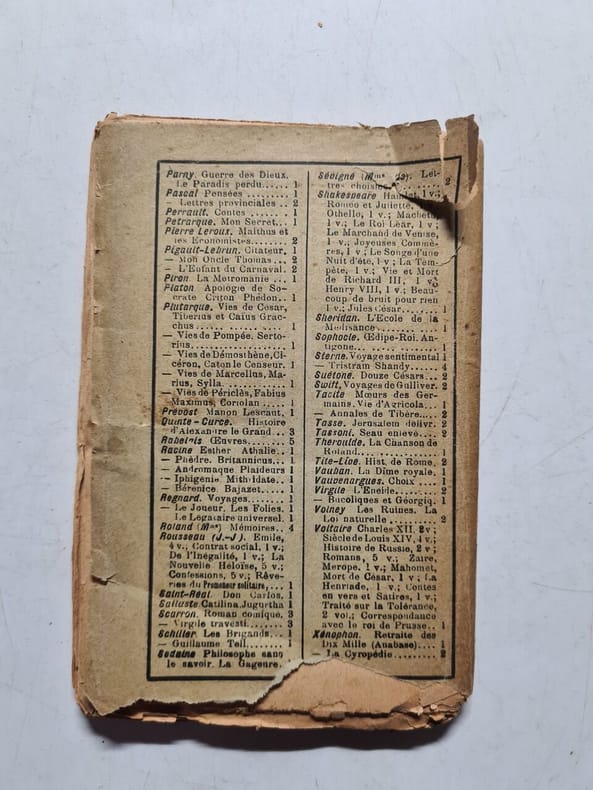 Parny. Guerre des Dieux.
Le Paradis perdu..... 1
Pascal Pensées ........ 1
— Lettres provinciales .. 2
Perrault. Contes ....... 1
Petrarque. Mon Secret.. 1
Pierre Leroux. Malthus et
les Economistes....... 2
Pigault-Lebrun. Citateur. 1
— Mon Oncle Thomas... 2
— L'Enfant du Carnaval. 2
Piron. La Métromanie ... 1
Platon. Apologie de So-
crate Criton Phédon.. 1
Plutarque. Vies de César,
Tibérius et Caïus Grac-
chus................. 1
— Vies de Pompée. Serto-
rius................. 1
— Vies de Démosthène, Ci-
céron, Caton le Censeur. 1
— Vies de Marcellus, Ma-
rius, Sylla........... 1
— Vies de Périclès, Fabius
Maximus, Coriolan .... 1
Prévost Manon Lescaut. 1
Quinte-Curce. Histoire
d'Alexandre le Grand... 3
Rabelais Œuvres....... 5
Racine Esther Athalie.. 1
— Phèdre. Britannicus.. 1
— Andromaque Plaideurs 1
— Iphigénie. Mithridate.. 1
— Bérénice. Bajazet..... 1
Regnard. Voyages....... 1
— Le Joueur. Les Folies. 1
Le Légataire universel. 1
Roland (Mme) Mémoires.. 4
Rousseau (J.-J.). Emile,
4 v.; Contrat social, 1 v.;
De l'Inégalité, 1 v.; La
Nouvelle Héloïse, 5 v.;
Confessions, 5 v.; Rêve-
ries du Promeneur solitaire... 1
Saint-Réal. Don Carlos. 1
Salluste Catilina. Jugurtha 1
Scarron. Roman comique. 3
— Virgile travesti........ 3
Schiller. Les Brigands... 1
— Guillaume Tell........ 1
Sedaine Philosophe sans
le savoir. La Gageure.
Sévigné (Mme de). Let-
tres choisies......... 2
Shakespeare Hamlet, 1 v.;
Roméo et Juliette,
Othello, 1 v.; Macbeth,
1 v.; Le Roi Lear, 1 v.;
Le Marchand de Venise,
1 v.; Joyeuses Commè-
res, 1 v.; Le Songe d'une
Nuit d'été, 1 v.; La Tem-
pête, 1 v.; Vie et Mort
de Richard III, 1 v.;
Henry VIII, 1 v.; Beau-
coup de bruit pour rien
1 v.; Jules César....... 1
Sheridan. L'Ecole de la
Médisance........... 1
Sophocle. Œdipe-Roi. An-
tigone............... 1
Sterne. Voyage sentimental 1
— Tristram Shandy...... 4
Suétone. Douze Césars.. 2
Swift, Voyages de Gulliver. 2
Tacite Mœurs des Ger-
mains. Vie d'Agricola... 1
— Annales de Tibère..... 2
Tasse. Jérusalem délivr. 2
Tassoni. Seau enlevé... 2
Théroulde. La Chanson de
Roland............... 1
Tite-Live. Hist. de Rome. 2
Vauban. La Dîme royale. 1
Vauvenargues. Choix .... 1
Virgile L'Enéide........ 2
— Bucoliques et Géorgiq. 1
Volney Les Ruines. La
Loi naturelle ......... 2
Voltaire Charles XII, 2 v;
Siècle de Louis XIV, 4 v.;
Histoire de Russie, 2 v;
Romans, 5 v.; Zaïre,
Mérope. 1 v.; Mahomet,
Mort de César, 1 v; La
Henriade, 1 v.; Contes
en vers et Satires, 1 v.;
Traité sur la Tolérance,
2 vol.; Correspondance
avec le roi de Prusse.. 1
Xénophon. Retraite des
Dix Mille (Anabase).... 1
— La Cyropédie......... 2